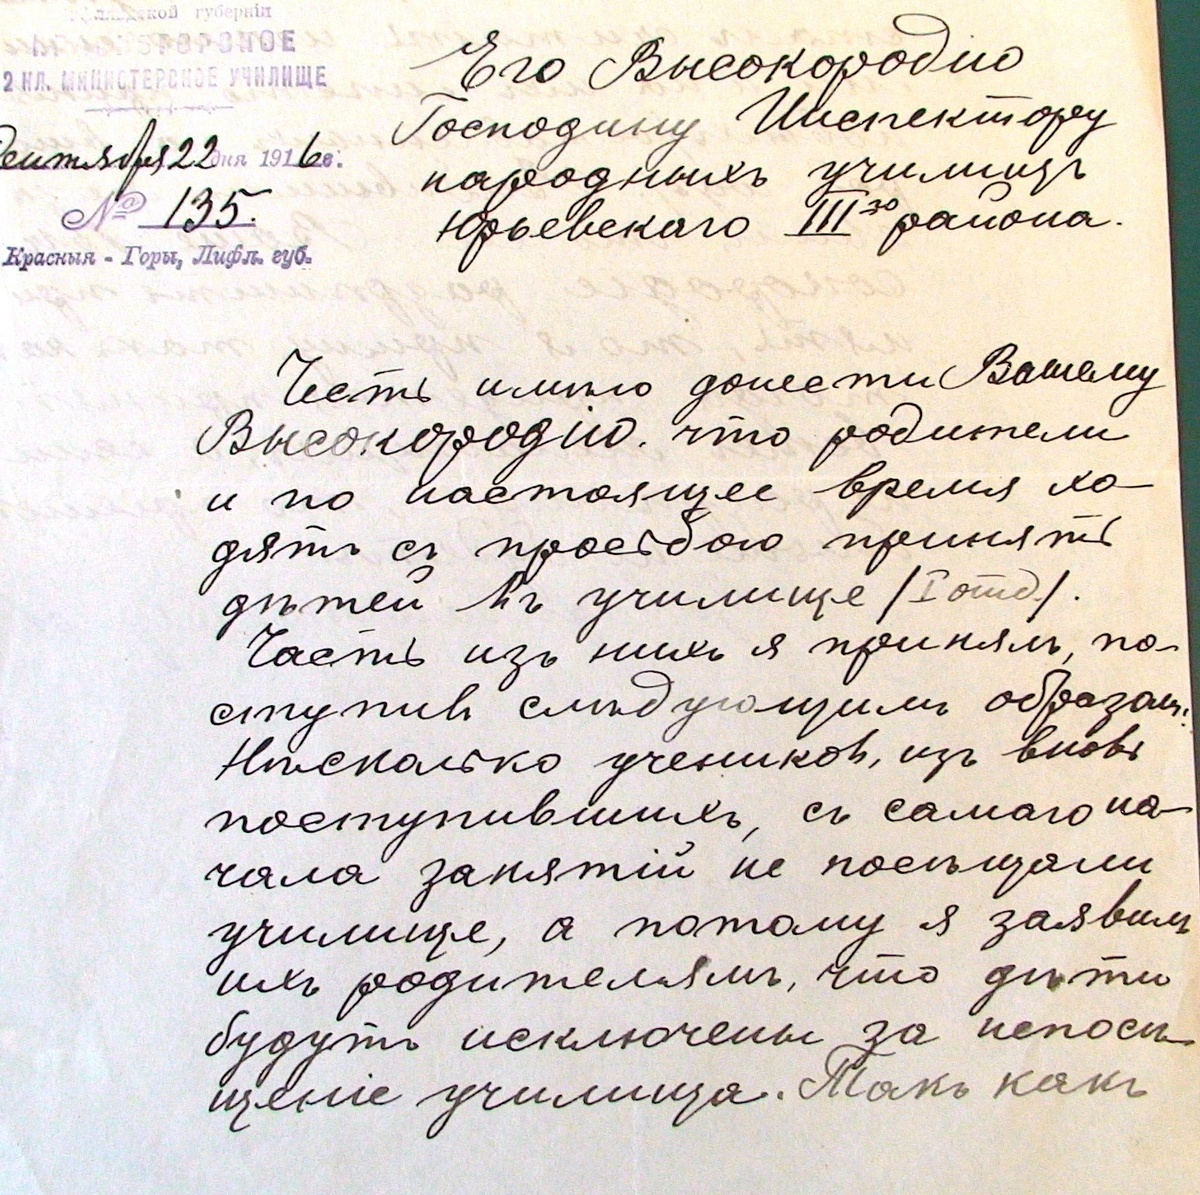 губерніи
2 КЛ. МИНИСТЕРСКОЕ УЧИЛИЩЕ
Сентября 22 дня 1916 г.
№ 135.
Красныя - Горы, Лифл. губ.
Его Высокородію
Господину Инспектору
народныхъ училищъ
Юрьевскаго III го района.
Честь имѣю донести Вашему
Высокородію, что родители
и по настоящее время хо-
дятъ съ просьбою принять
дѣтей въ училище /I отд/.
Часть изъ нихъ я принялъ, по-
ступивъ слѣдующимъ образомъ:
Нѣсколько учениковъ, изъ вновь
поступившихъ, съ самаго на-
чала занятій не посѣщали
училище, а потому я заявилъ
ихъ родителямъ, что дѣти
будутъ исключены за непосѣ-
щеніе училища. Такъ какъ